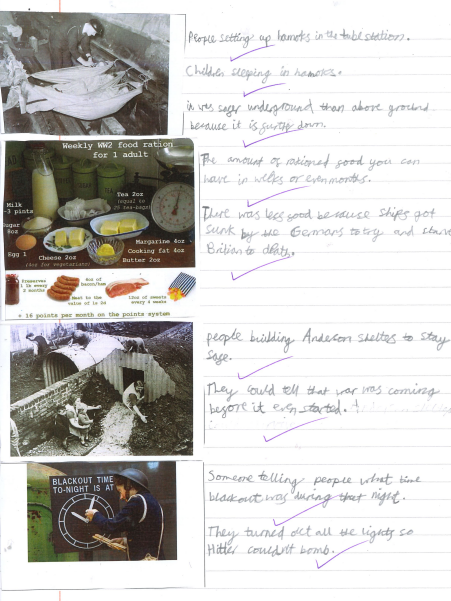 People setting up hamoks in the tube station.
Children sleeping in hamoks.
it was safer underground than above ground
because it is further down.
Weekly WW2 food ration
for 1 adult
Milk
~3 pints
Tea 2oz
(equal to
Sugar
8oz
Egg 1
Cheese 2oz
(4oz for vegetarians)
Margarine 4oz
Cooking fat 4oz
Butter 2oz
The amount of rationed food you can
have in weeks or even months.
There was less food because ships got
sunk by the Germans to try and starve
to death.
Preserves
1 lb every
2 months
4oz of
bacon/ham
Meat to the
value of 1s 2d
12oz of sweets
every 4 weeks
+ 16 points per month on the points system
people building Anderson shelters to stay
safe.
They could tell that war was coming
before it even started.
BLACKOUT TIME
TO-NIGHT IS AT
Someone telling people what time
blackout was during that night.
They turned out all the lights so
Hitler couldn't bomb.